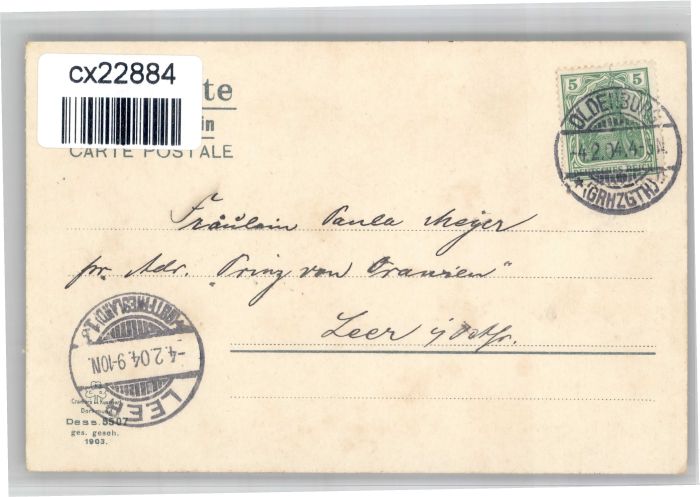 cx22884
te
in
CARTE POSTALE
5 5
OLDENBURG
-4.2.04.4-5N.
*(GRHZGTH)*
Fräulein Paula Meyer
pr. Adr. "Prinz von Oranien"
Leer i/Ostfr.
(OSTFRIESLAND) 1
-4.2.04.9-10N.
LEER
Dortmund
Dess. 5507
ges. gesch.
1903.